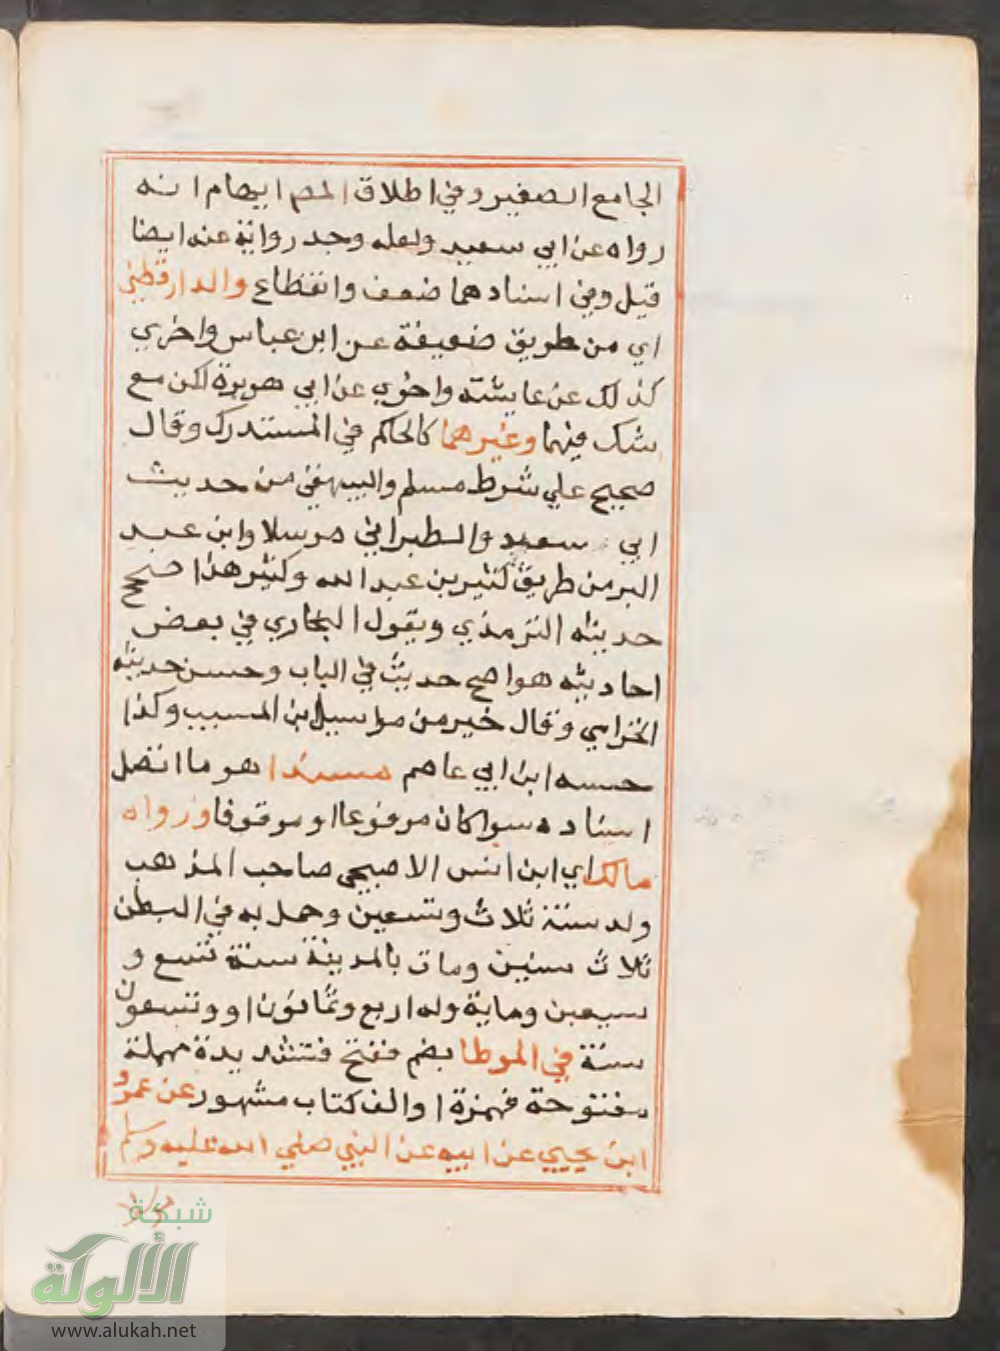 الجامع الصغير وفي اطلاق المص ايهام انه
رواه عن ابي سعيد ولعله وجد رواية عنه ايضا
قيل وفي اسنادهما ضعف وانقطاع والدارقطني
اي من طريق ضعيفة عن ابن عباس واخري
كذلك عن عايشة واخري عن ابي هريرة لكن مع
شك فيها وغيرهما كالحاكم في المستدرك وقال
صحيح علي شرط مسلم والبيهقي من حديث
ابي سعيد والطبراني مرسلا وابن عبد
البر من طريق كثير بن عبد الله وكثير هذا صحح
حديثه الترمذي ويقول البخاري في بعض
احاديثه هو اصح حديث في الباب وحسن حديثه
الخزامي وقال خير من مراسيل ابن المسيب وكذا
حسنه ابن ابي عاصم مسندا هو ما اتصل
اسناده سوا كان مرفوعا او موقوفا ورواه
مالك اي ابن انس الاصبحي صاحب المذهب
ولد سنة ثلاث وتسعين وحمل به في البطن
ثلاث سنين ومات بالمدينة سنة تسع و
سبعين وماية وله اربع وثمانون او وتسعون
سنة في الموطا بضم ففتح فتشديد ة مهملة
مفتوحة فهمزة او الف كتاب مشهور عن عمرو
ابن يحيي عن ابيه عن النبي صلي الله عليه وسلم
شبكة
الألوكة
www.alukah.net